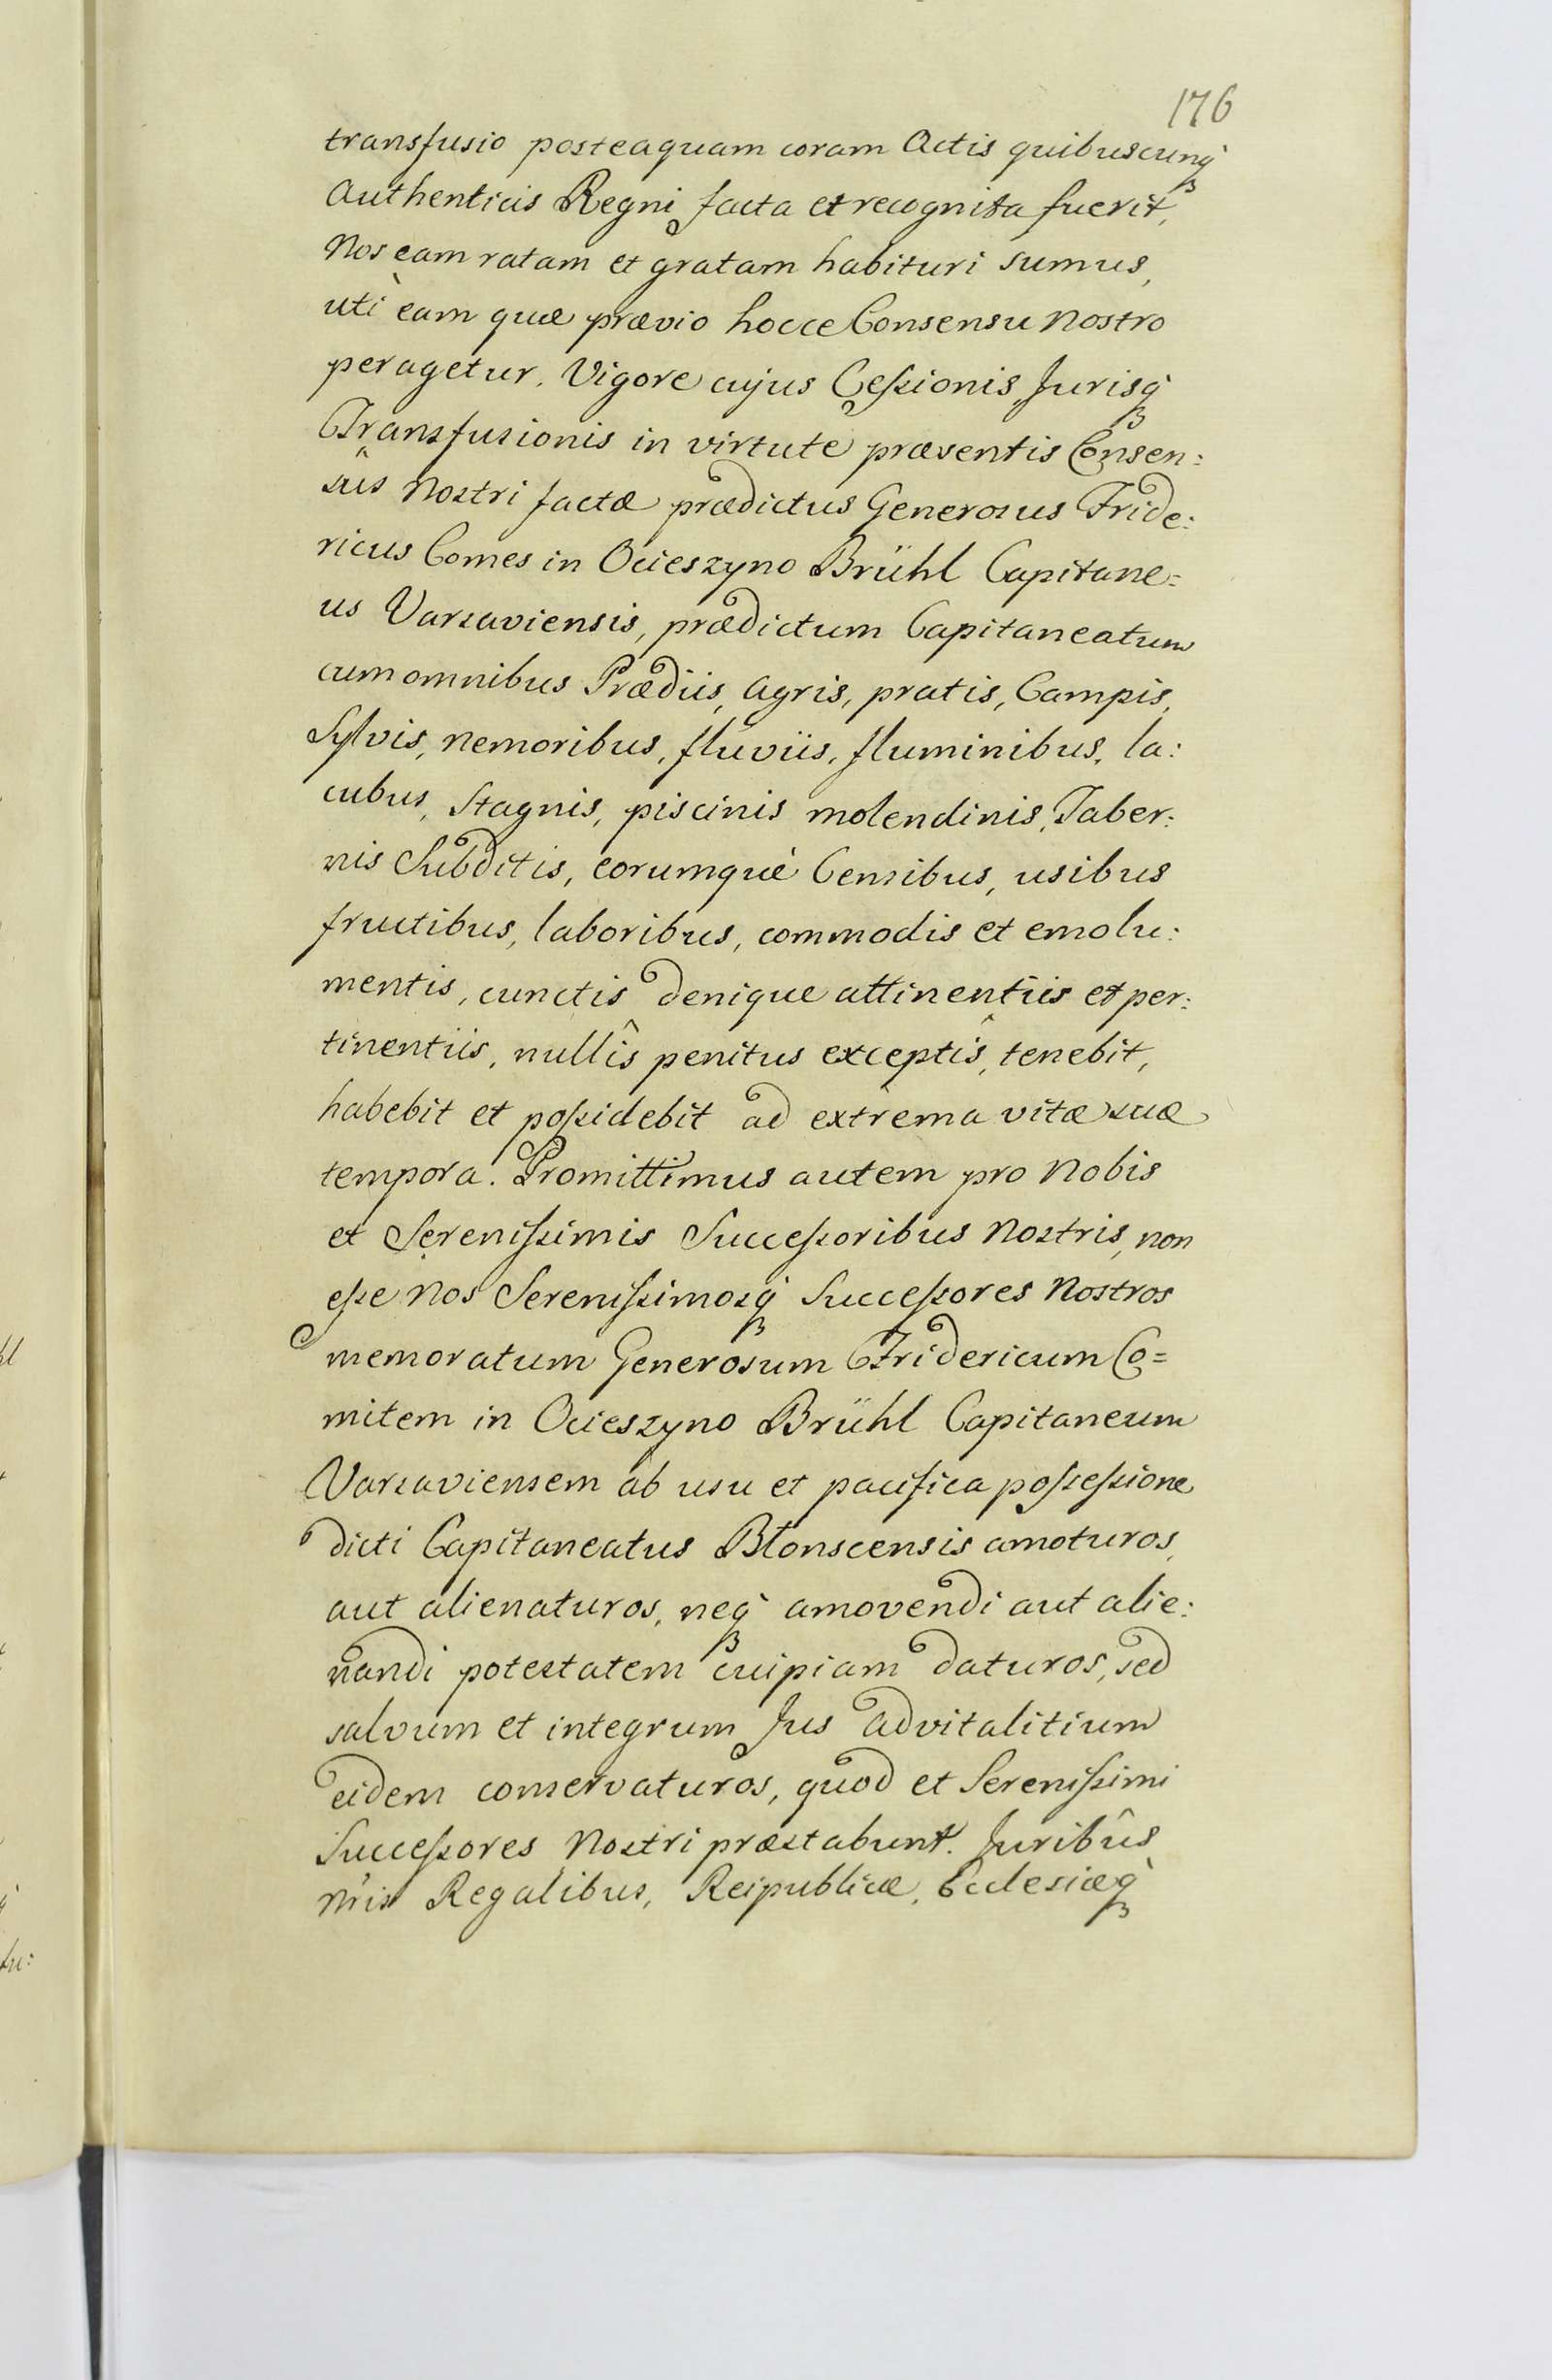 176
transfusio posteaquam coram Actis quibuscunq̀ꝫ
Authenticis Regni facta et recognita fuerit,
Nos eam ratam et gratam habituri sumus,
utì eam quæ prævio hocce Consensu Nostro
peragetur. Vigore cujus Ceſsionis, Jurisq̀ꝫ
Transfusionis in virtute præsentis Consen:
sûs Nostri factæ prædictus Generosus Fride:
ricus Comes in Ocieszyno Brühl Capitane=
us Varsaviensis, prædictum Capitaneatum
cum omnibus Prædiis, Agris, pratis, Campis,
Sylvis, nemoribus, fluviis, fluminibus, la:
cubus, Stagnis, piscinis molendinis, Taber:
nis Subditis, eorumquè Censibus, usibus
fructibus, laboribus, commodis et emolu:
mentis, cunctis denique attinentiis et per:
tinentiis, nullîs penitus exceptîs, tenebit,
habebit et poſsidebit ad extrema vitæ suæ
tempora. Promittimus autem pro Nobis
et Sereniſsimis Succeſsoribus Nostris, non
eſse Nos Sereniſsimosq̀ꝫ Succeſsores Nostros
memoratum Generosum Fridericum Co=
mitem in Ocieszyno Brühl Capitaneum
Varsaviensem ab usu et pacifica poſseſsione
dicti Capitaneatus Blonscensis amoturos,
aut alienaturos, neq̀ꝫ amovendi aut alie:
nandi potestatem cuipiam daturos, sed
salvum et integrum Jus advitalitium
eidem conservaturos, quod et Sereniſsimi
Succeſsores Nostri præstabunt. Juribûs
Nris Regalibus, Reipublicæ, Ecclesiæq̀ꝫ